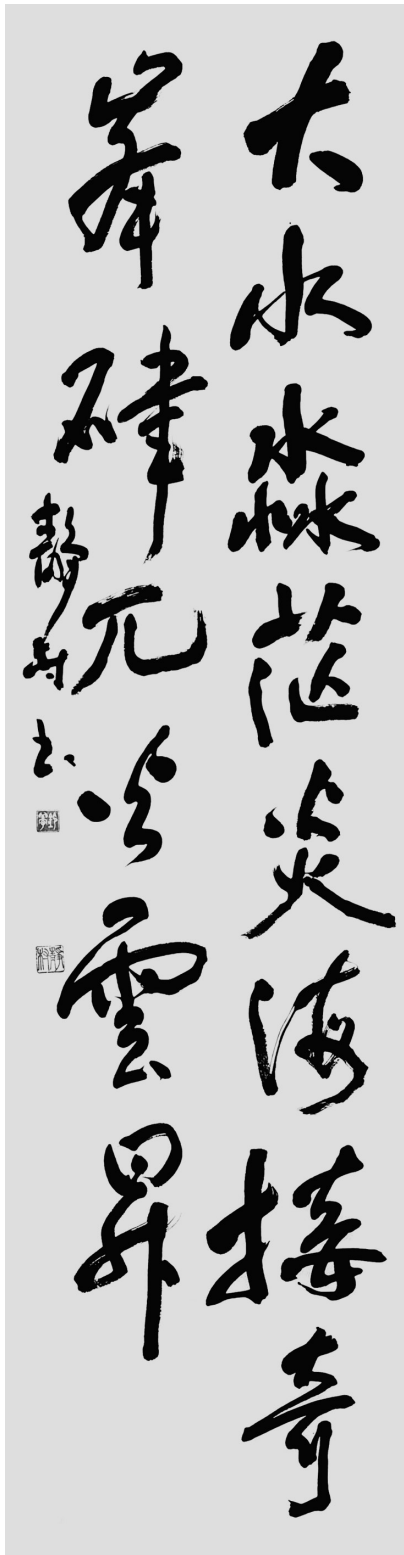 大水淼茫炎海接奇
峯硉兀火雲昇
靜 書